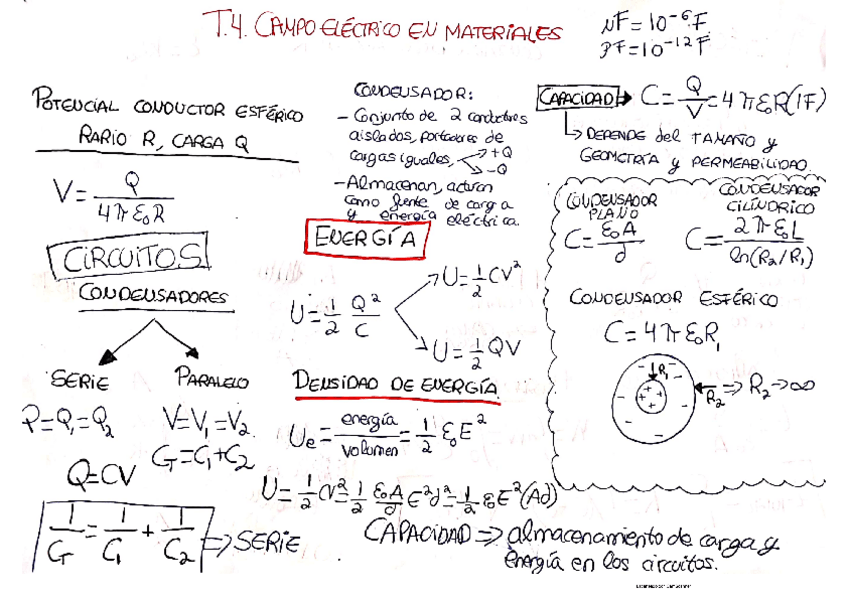 T.4. CAMPO ELÉCTRICO EN MATERIALES
μF = 10⁻⁶ F
pF = 10⁻¹² F
POTENCIAL CONDUCTOR ESFÉRICO
RARIO R, CARGA Q
V = Q / 4πε₀R
CIRCUITOS
CONDENSADORES
SERIE
PARALELO
Q = Q₁ = Q₂
V = V₁ = V₂
C_T = C₁ + C₂
Q = CV
1/C_T = 1/C₁ + 1/C₂ ⇒ SERIE
CONDENSADOR:
- Conjunto de 2 conductores
aislados, portadores de
cargas iguales, +Q
-Q
- Almacenan, actúan
como fuente de carga
y energía eléctrica.
ENERGÍA
U = 1/2 Q²/C
U = 1/2 CV²
U = 1/2 QV
DENSIDAD DE ENERGÍA
Ue = energía/volumen = 1/2 ε₀E²
U = 1/2 CV² = 1/2 ε₀A/d E²d² = 1/2 ε₀E²(Ad)
CAPACIDAD ⇒ almacenamiento de carga y
energía en los circuitos.
CAPACIDAD → C = Q/V = 4πε₀R (1F)
DEPENDE del TAMAÑO y
GEOMETRÍA y PERMEABILIDAD.
CONDENSADOR
PLANO
C = ε₀A / d
CONDENSADOR
CILÍNDRICO
C = 2πε₀L / ln(R₂/R₁)
CONDENSADOR ESFÉRICO
C = 4πε₀R₁
R₁
R₂ ⇒ R₂ → ∞